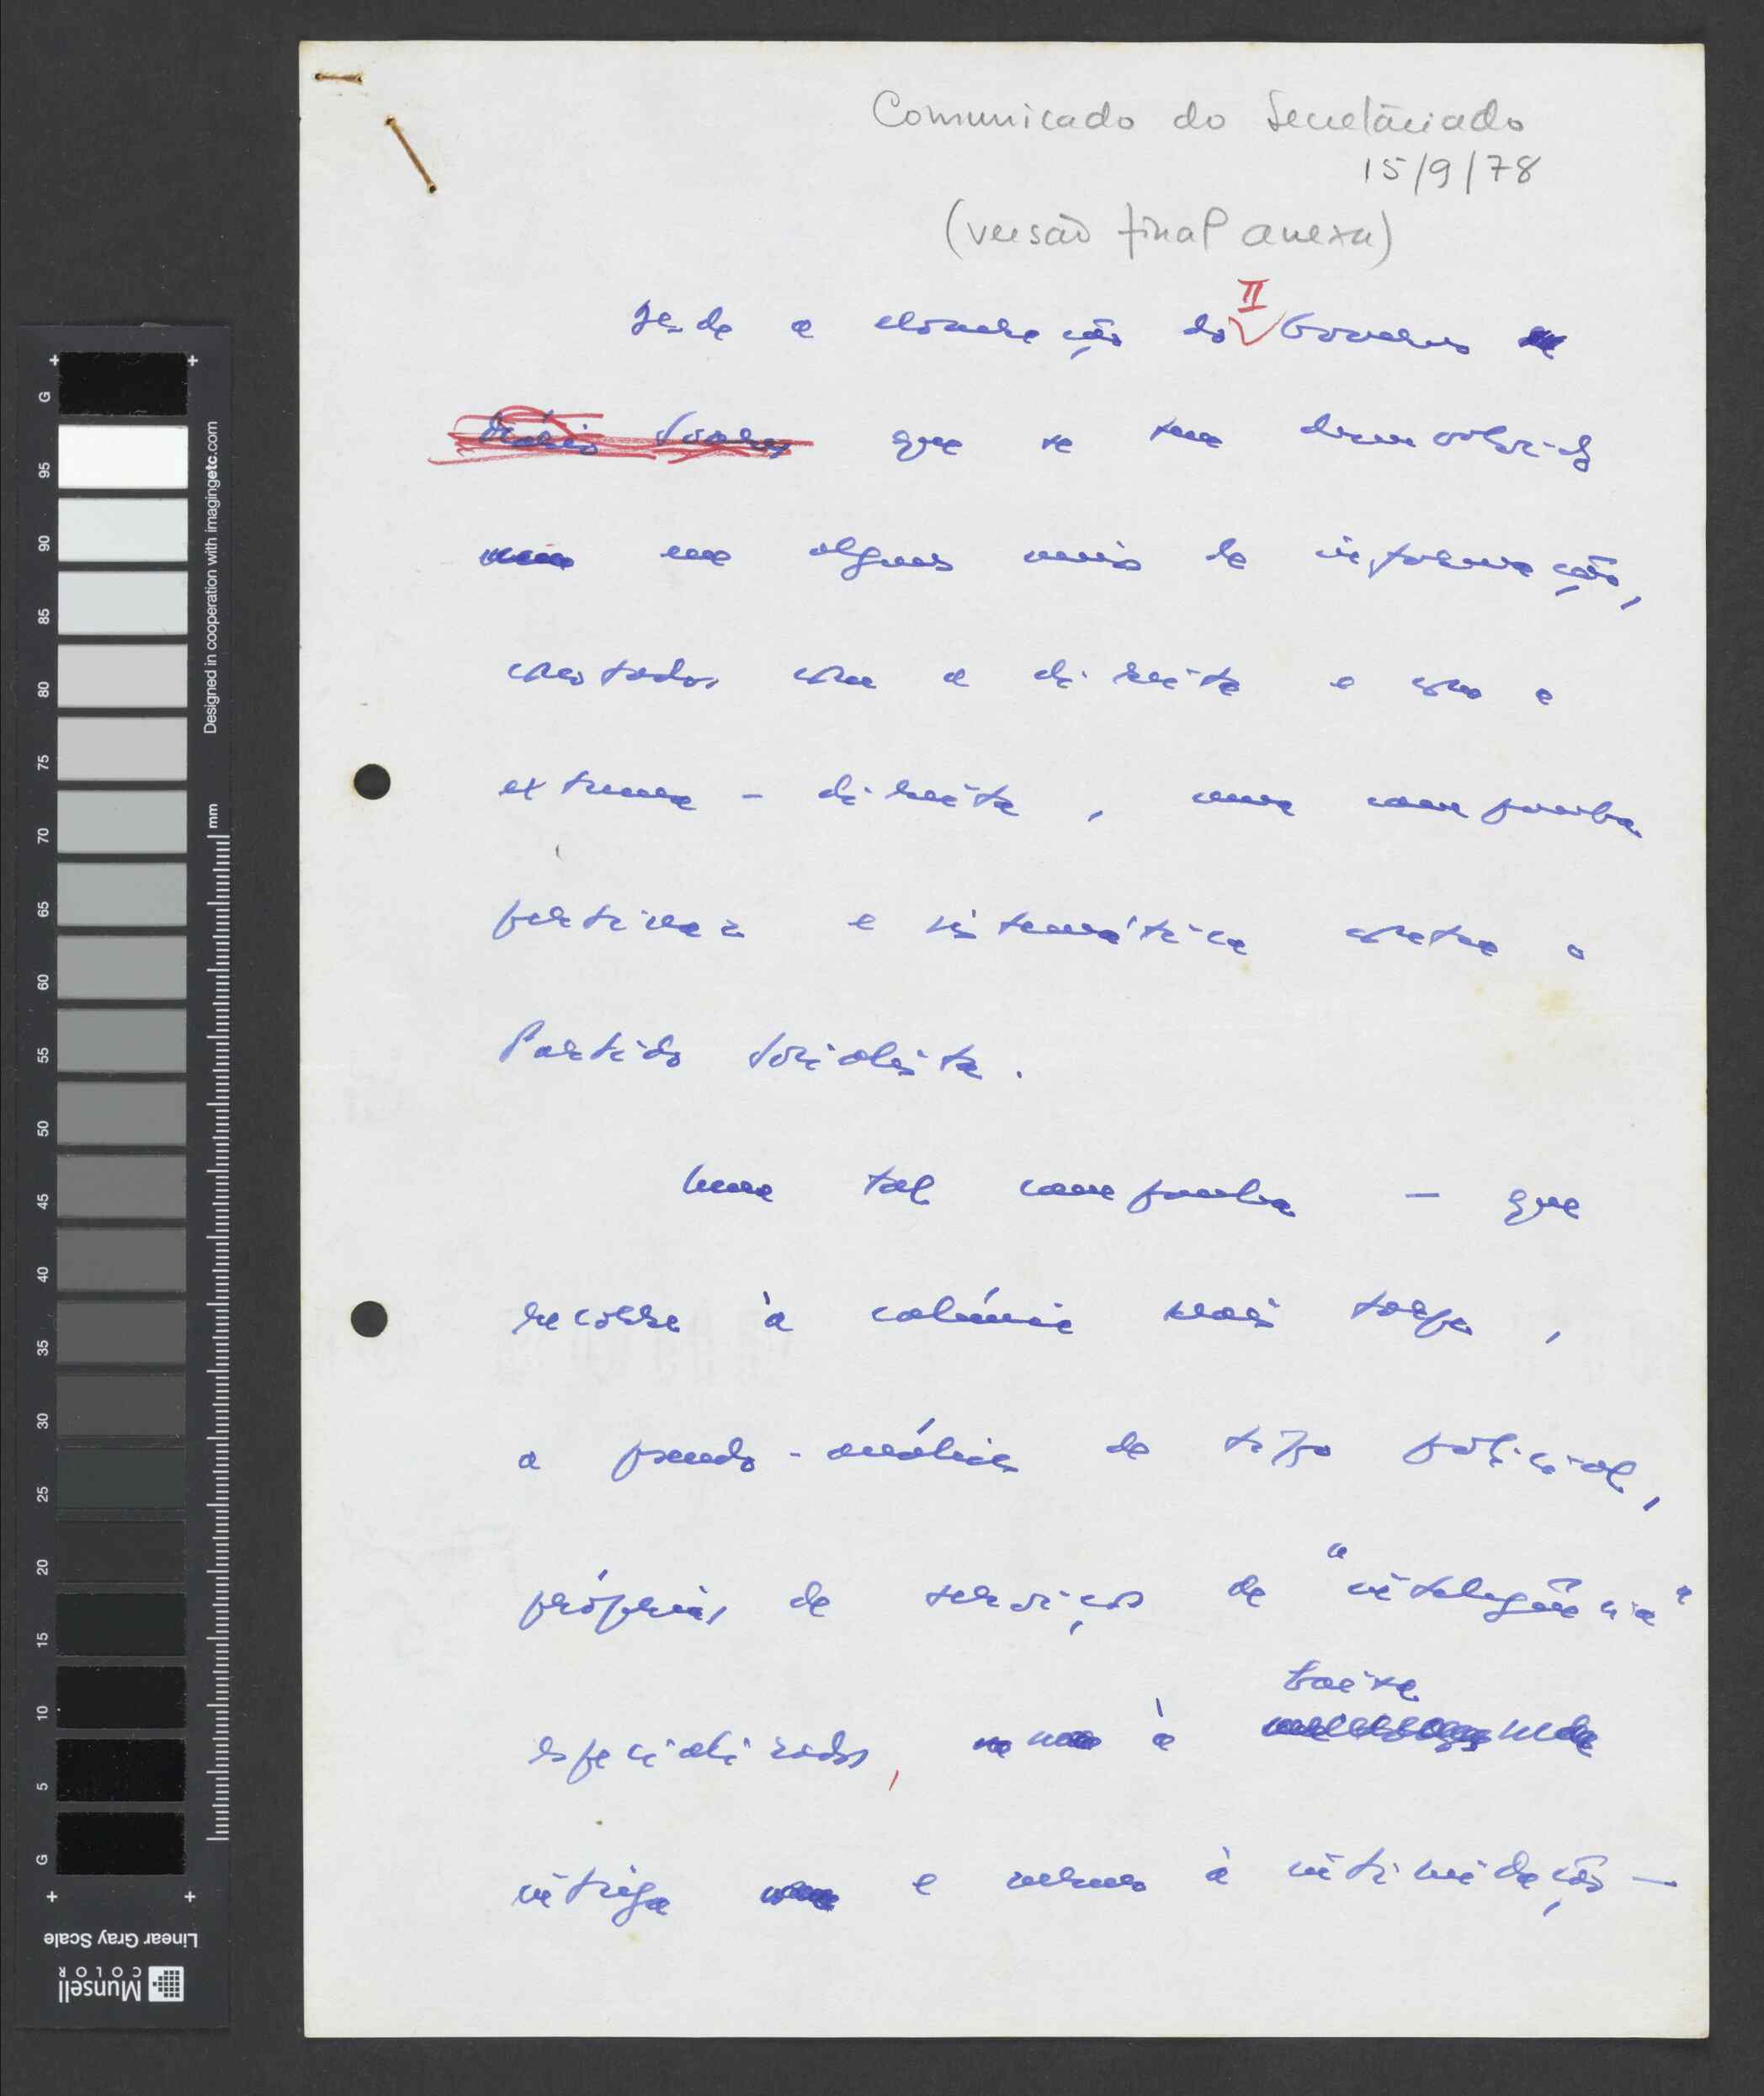 Comunicado do Secretariado
15/9/78
(versão final anexa)
II
Desde a exoneração do Governo
Mário Soares que se tem desenvolvido
em alguns meios de informação,
conotados com a direita e com a
extrema-direita, uma campanha
pertinaz e sistemática contra o
Partido Socialista.
Uma tal campanha — que
recorre à calúnia mais torpe,
a pseudo-análises de tipo policial,
próprias de serviços de "inteligência"
baixa
especializados, à
intriga e mesmo à intimidação —
G
95
90
85
80
75
70
65
60
55
50
45
40
35
30
25
20
15
10
5
G
mm
Designed in cooperation with imagingetc.com
Linear Gray Scale
Munsell
COLOR